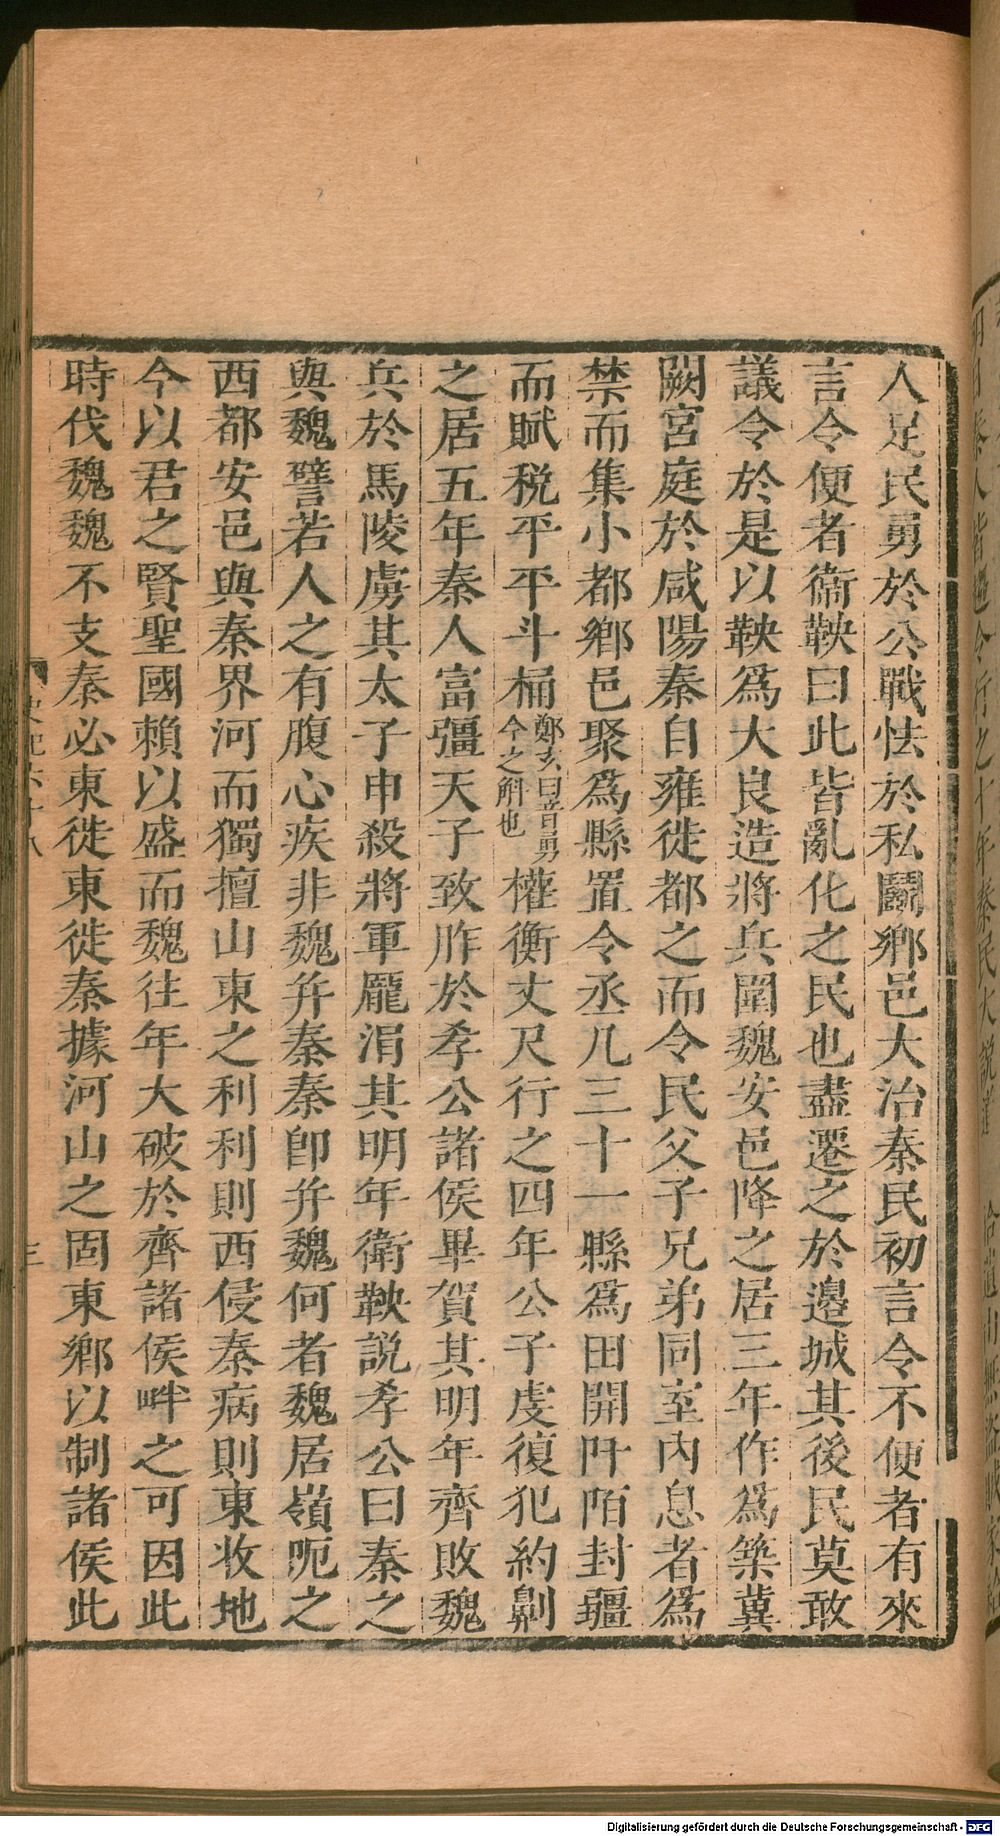 人足民勇於公戰怯於私鬬鄉邑大治秦民初言令不便者有來
言令便者衞鞅曰此皆亂化之民也盡遷之於邊城其後民莫敢
議令於是以鞅爲大良造將兵圍魏安邑降之居三年作爲築冀
闕宮庭於咸陽秦自雍徙都之而令民父子兄弟同室內息者爲
禁而集小都鄉邑聚爲縣置令丞凡三十一縣爲田開阡陌封疆
而賦稅平平斗桶鄭玄曰音勇今之斛也權衡丈尺行之四年公子虔復犯約劓
之居五年秦人富彊天子致胙於孝公諸侯畢賀其明年齊敗魏
兵於馬陵虜其太子申殺將軍龐涓其明年衛鞅說孝公曰秦之
與魏譬若人之有腹心疾非魏幷秦秦卽幷魏何者魏居嶺呃之
西都安邑與秦界河而獨擅山東之利利則西侵秦病則東收地
今以君之賢聖國賴以盛而魏往年大破於齊諸侯畔之可因此
時伐魏魏不支秦必東徙東徙秦據河山之固東鄉以制諸侯此
史記六十八
三
Digitalisierung gefördert durch die Deutsche Forschungsgemeinschaft - DFG